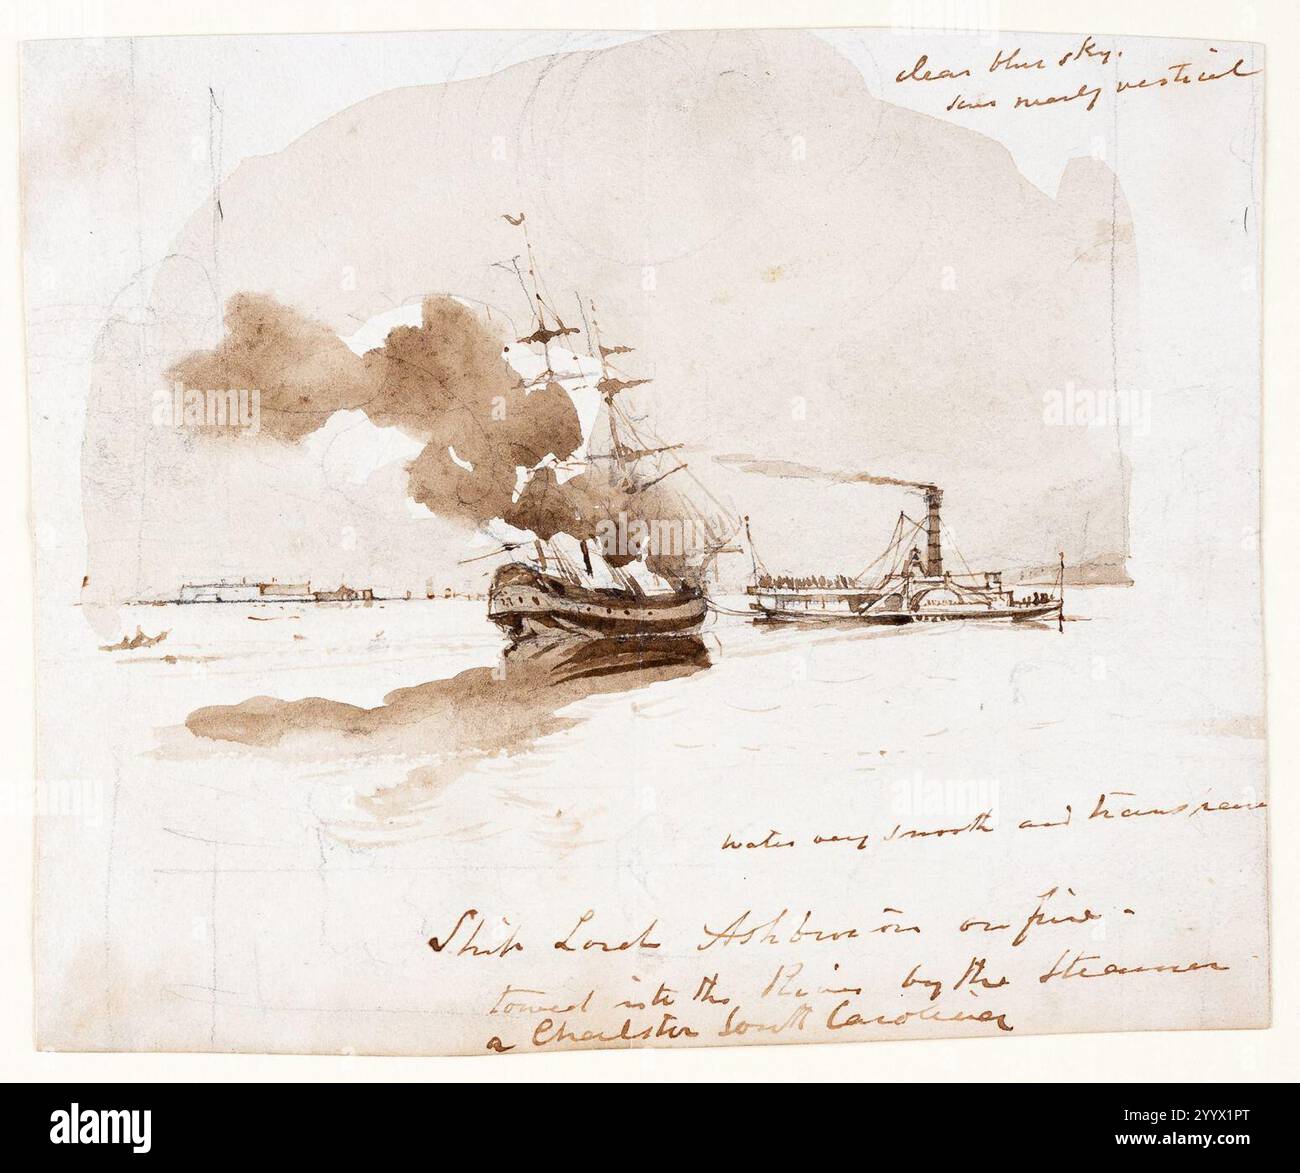 clear blue sky.
sun nearly vertical
water very smooth and
Ship Lord Ashburton on fire -
towed into the River by the Steamer
a Charlston South Carolina
alamy
Image ID: 2YYX1PT
www.alamy.com